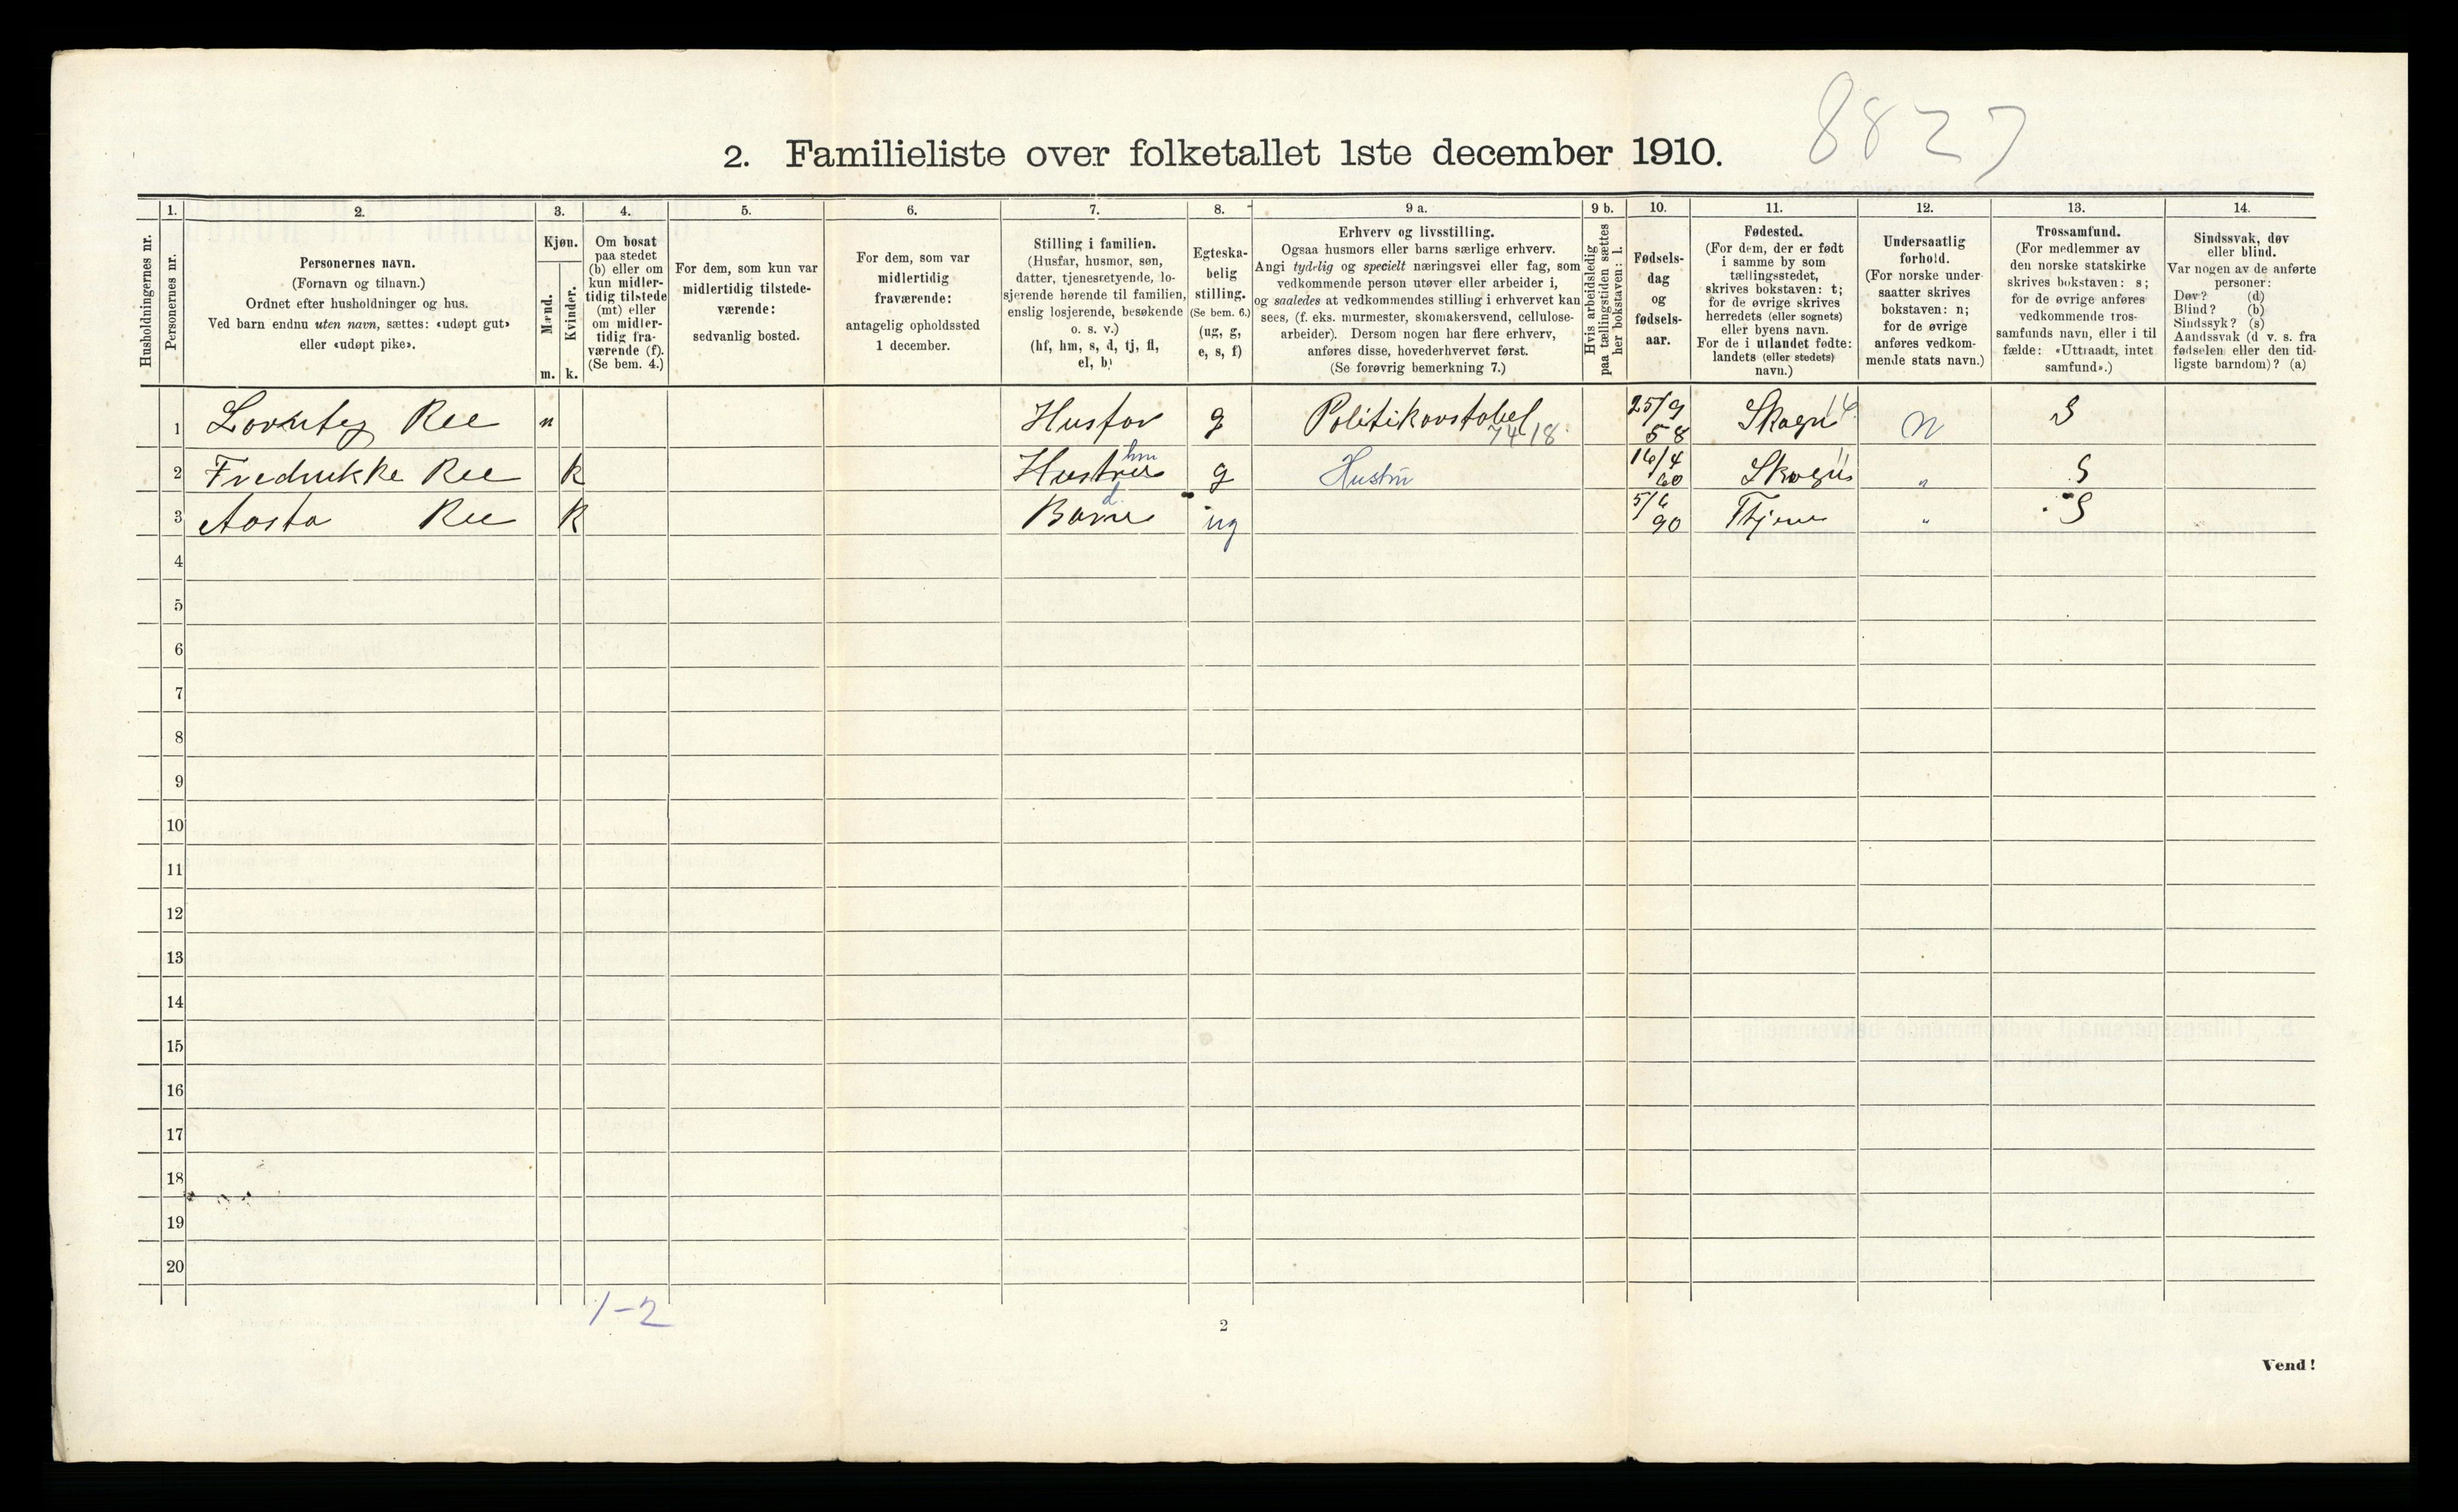 8827
2. Familieliste over folketallet 1ste december 1910.
Husholdningernes nr.
1.
Personernes nr.
2.
Personernes navn.
(Fornavn og tilnavn.)
Ordnet efter husholdninger og hus.
Ved barn endnu uten navn, sættes: «udøpt gut»
eller «udøpt pike».
3.
Kjøn.
Mænd.
Kvinder.
m. k.
4.
Om bosat
paa stedet
(b) eller om
kun midler-
tidig tilstede
(mt) eller
om midler-
tidig fra-
værende (f).
(Se bem. 4.)
5.
For dem, som kun var
midlertidig tilstede-
værende:
sedvanlig bosted.
6.
For dem, som var
midlertidig
fraværende:
antagelig opholdssted
1 december.
7.
Stilling i familien.
(Husfar, husmor, søn,
datter, tjenestetyende, lo-
sjerende hørende til familien,
enslig losjerende, besøkende
o. s. v.)
(hf, hm, s, d, tj, fl,
el, b)
8.
Egteska-
belig
stilling.
(Se bem. 6.)
(ug, g,
e, s, f)
9 a.
Erhverv og livsstilling.
Ogsaa husmors eller barns særlige erhverv.
Angi tydelig og specielt næringsvei eller fag, som
vedkommende person utøver eller arbeider i,
og saaledes at vedkommendes stilling i erhvervet kan
sees, (f. eks. murmester, skomakersvend, cellulose-
arbeider). Dersom nogen har flere erhverv,
anføres disse, hovederhvervet først.
(Se forøvrig bemerkning 7.)
9 b.
Hvis arbeidsledig
paa tællingstiden sættes
her bokstaven: l.
10.
Fødsels-
dag
og
fødsels-
aar.
11.
Fødested.
(For dem, der er født
i samme by som
tællingsstedet,
skrives bokstaven: t;
for de øvrige skrives
herredets (eller sognets)
eller byens navn.
For de i utlandet fødte:
landets (eller stedets)
navn.)
12.
Undersaatlig
forhold.
(For norske under-
saatter skrives
bokstaven: n;
for de øvrige
anføres vedkom-
mende stats navn.)
13.
Trossamfund.
(For medlemmer av
den norske statskirke
skrives bokstaven: s;
for de øvrige anføres
vedkommende tros-
samfunds navn, eller i til-
fælde: «Uttraadt, intet
samfund».)
14.
Sindssvak, døv
eller blind.
Var nogen av de anførte
personer:
Døv? (d)
Blind? (b)
Sindssyk? (s)
Aandssvak (d. v. s. fra
fødselen eller den tid-
ligste barndom)? (a)
1 Ree m Husfar g Politikonstabel 7418 25/9 58 Skogn 16 n S
2 Fredrikke Ree k Hustru hm g Hustru 16/4 60 Skogn " " S
3 Aasta Ree k Barn d ug 5/6 90 " S
4
5
6
7
8
9
10
11
12
13
14
15
16
17
18
19
20
1-2
2
Vend!